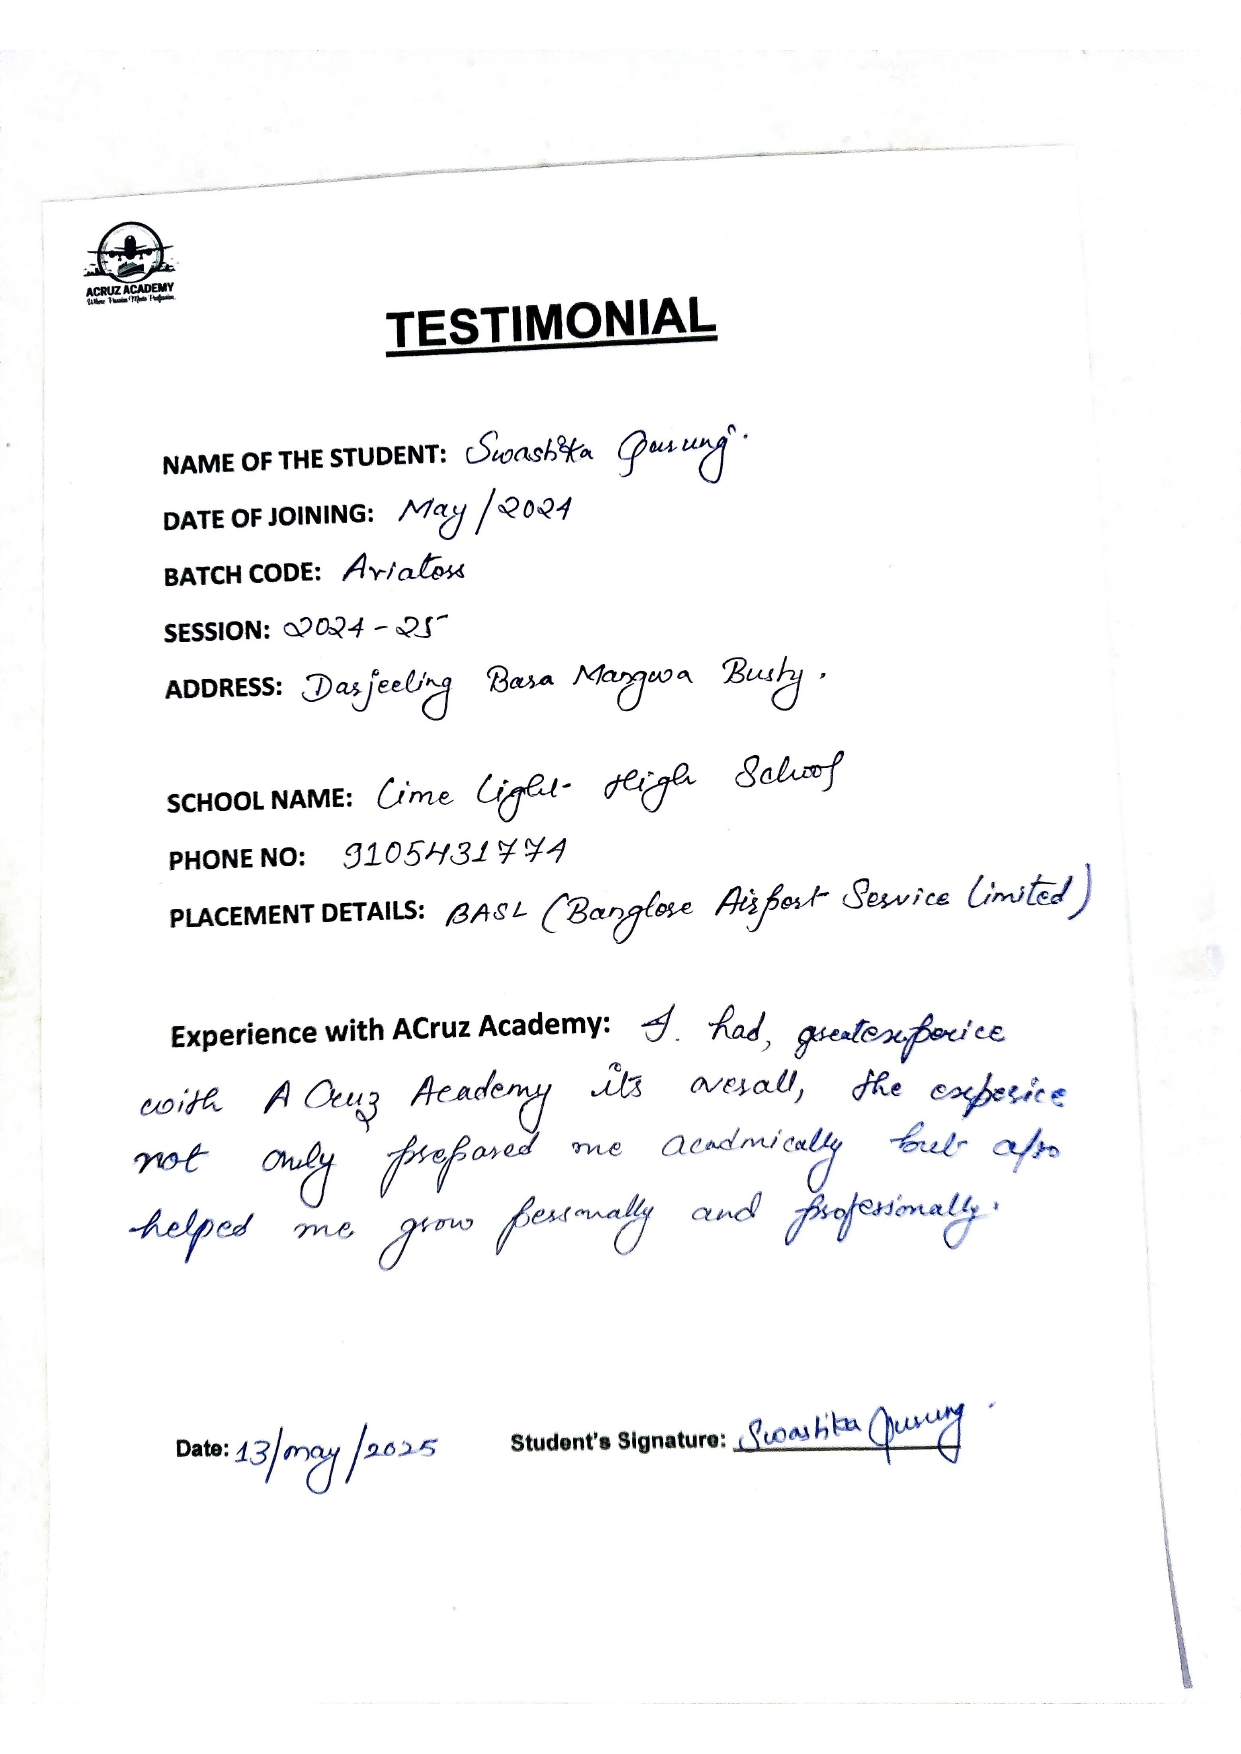 ACRUZ ACADEMY
Where Passion Meets Profession
TESTIMONIAL
NAME OF THE STUDENT: Swashtika Gurung.
DATE OF JOINING: May/2024
BATCH CODE: Aviators
SESSION: 2024-25
ADDRESS: Darjeeling Bara Mangwa Busty.
SCHOOL NAME: Lime Light High School
PHONE NO: 9105431774
PLACEMENT DETAILS: BASL (Banglore Airport Service Limited)
Experience with ACruz Academy: I. had, greatexperice
with A Cruz Academy its overall, the experice
not only prepared me acadmically but also
helped me grow personally and profesionally.
Date: 13/may/2025 Student's Signature: Swashtika Gurung.